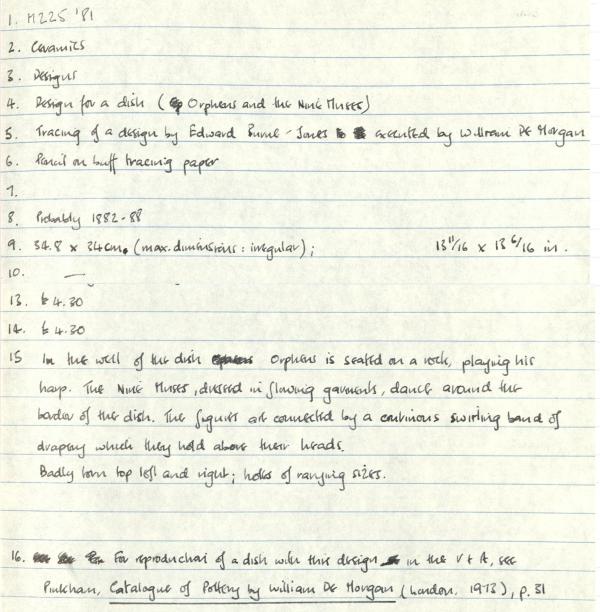 1. M225 '81
2. Ceramics
3. Designs
4. Design for a dish ( Orpheus and the Nine Muses)
5. Tracing of a design by Edward Burne-Jones executed by William De Morgan
6. Pencil on buff tracing paper
7.
8. Probably 1882-88
9. 34.8 x 34cm. (max. dimensions : irregular); 13 11/16 x 13 6/16 in.
10. —
13. E 4.30
14. E 4.30
15 In the well of the dish Orpheus is seated on a rock, playing his
harp. The Nine Muses, dressed in flowing garments, dance around the
border of the dish. The figures are connected by a continous swirling band of
drapery which they hold above their heads.
Badly torn top left and right; holes of varying sizes.
16. For reproduction of a dish with this design in the V & A, see
Pinkham, Catalogue of Pottery by William De Morgan (London. 1973), p. 31